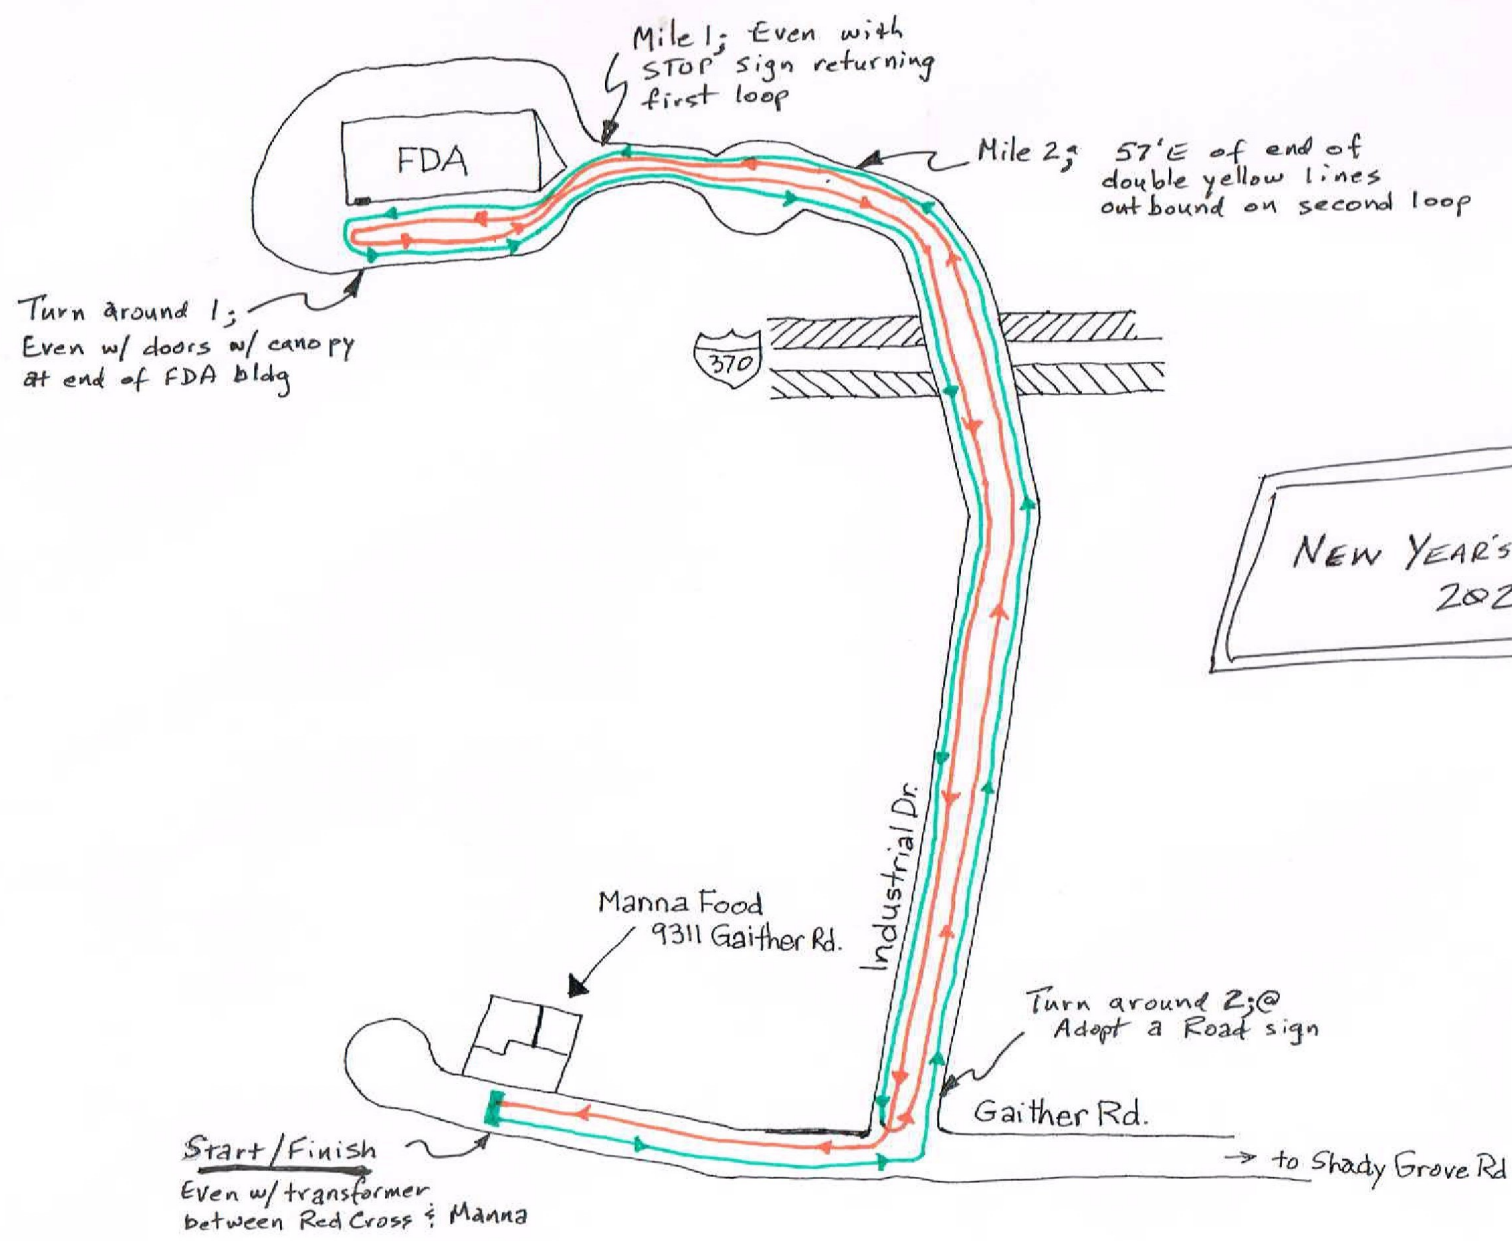 Mile 1; Even with
STOP sign returning
first loop
FDA
Mile 2; 57'E of end of
double yellow lines
outbound on second loop
Turn around 1;
Even w/ doors w/ canopy
at end of FDA bldg
370
NEW YEAR'S
202
Industrial Dr.
Manna Food
9311 Gaither Rd.
Turn around 2;@
Adopt a Road sign
Gaither Rd.
→ to Shady Grove Rd
Start/Finish
Even w/ transformer
between Red Cross & Manna